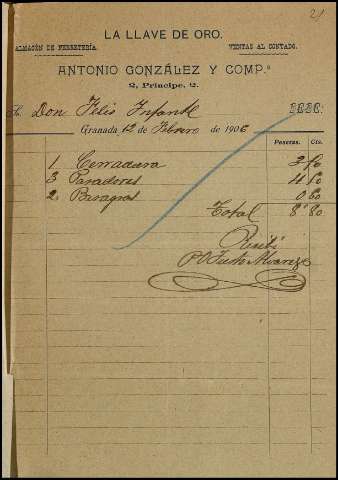 21
LA LLAVE DE ORO.
ALMACÓN DE FERRETERÍA. VENTAS AL CONTADO.
ANTONIO GONZÁLEZ Y COMP.ª
2, Príncipe, 2.
Don Felis Infante DEBE:
Granada 12 de Febrero de 1906
Pesetas. Cts.
1 Cerradura
3 Pasadores
2 0 60
Total 8 80
Recibí
PO Justo Alvarez